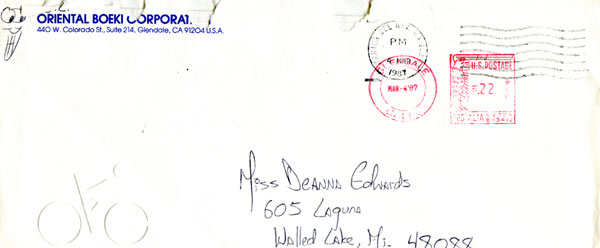 ORIENTAL BOEKI CORPORAT.
440 W. Colorado St., Suite 214, Glendale, CA 91204 U.S.A.
PM
1987
MAR-4'87
U.S. POSTAGE
.22
Miss Deanna Edwards
605 Laguna
Walled Lake, Mi. 48088